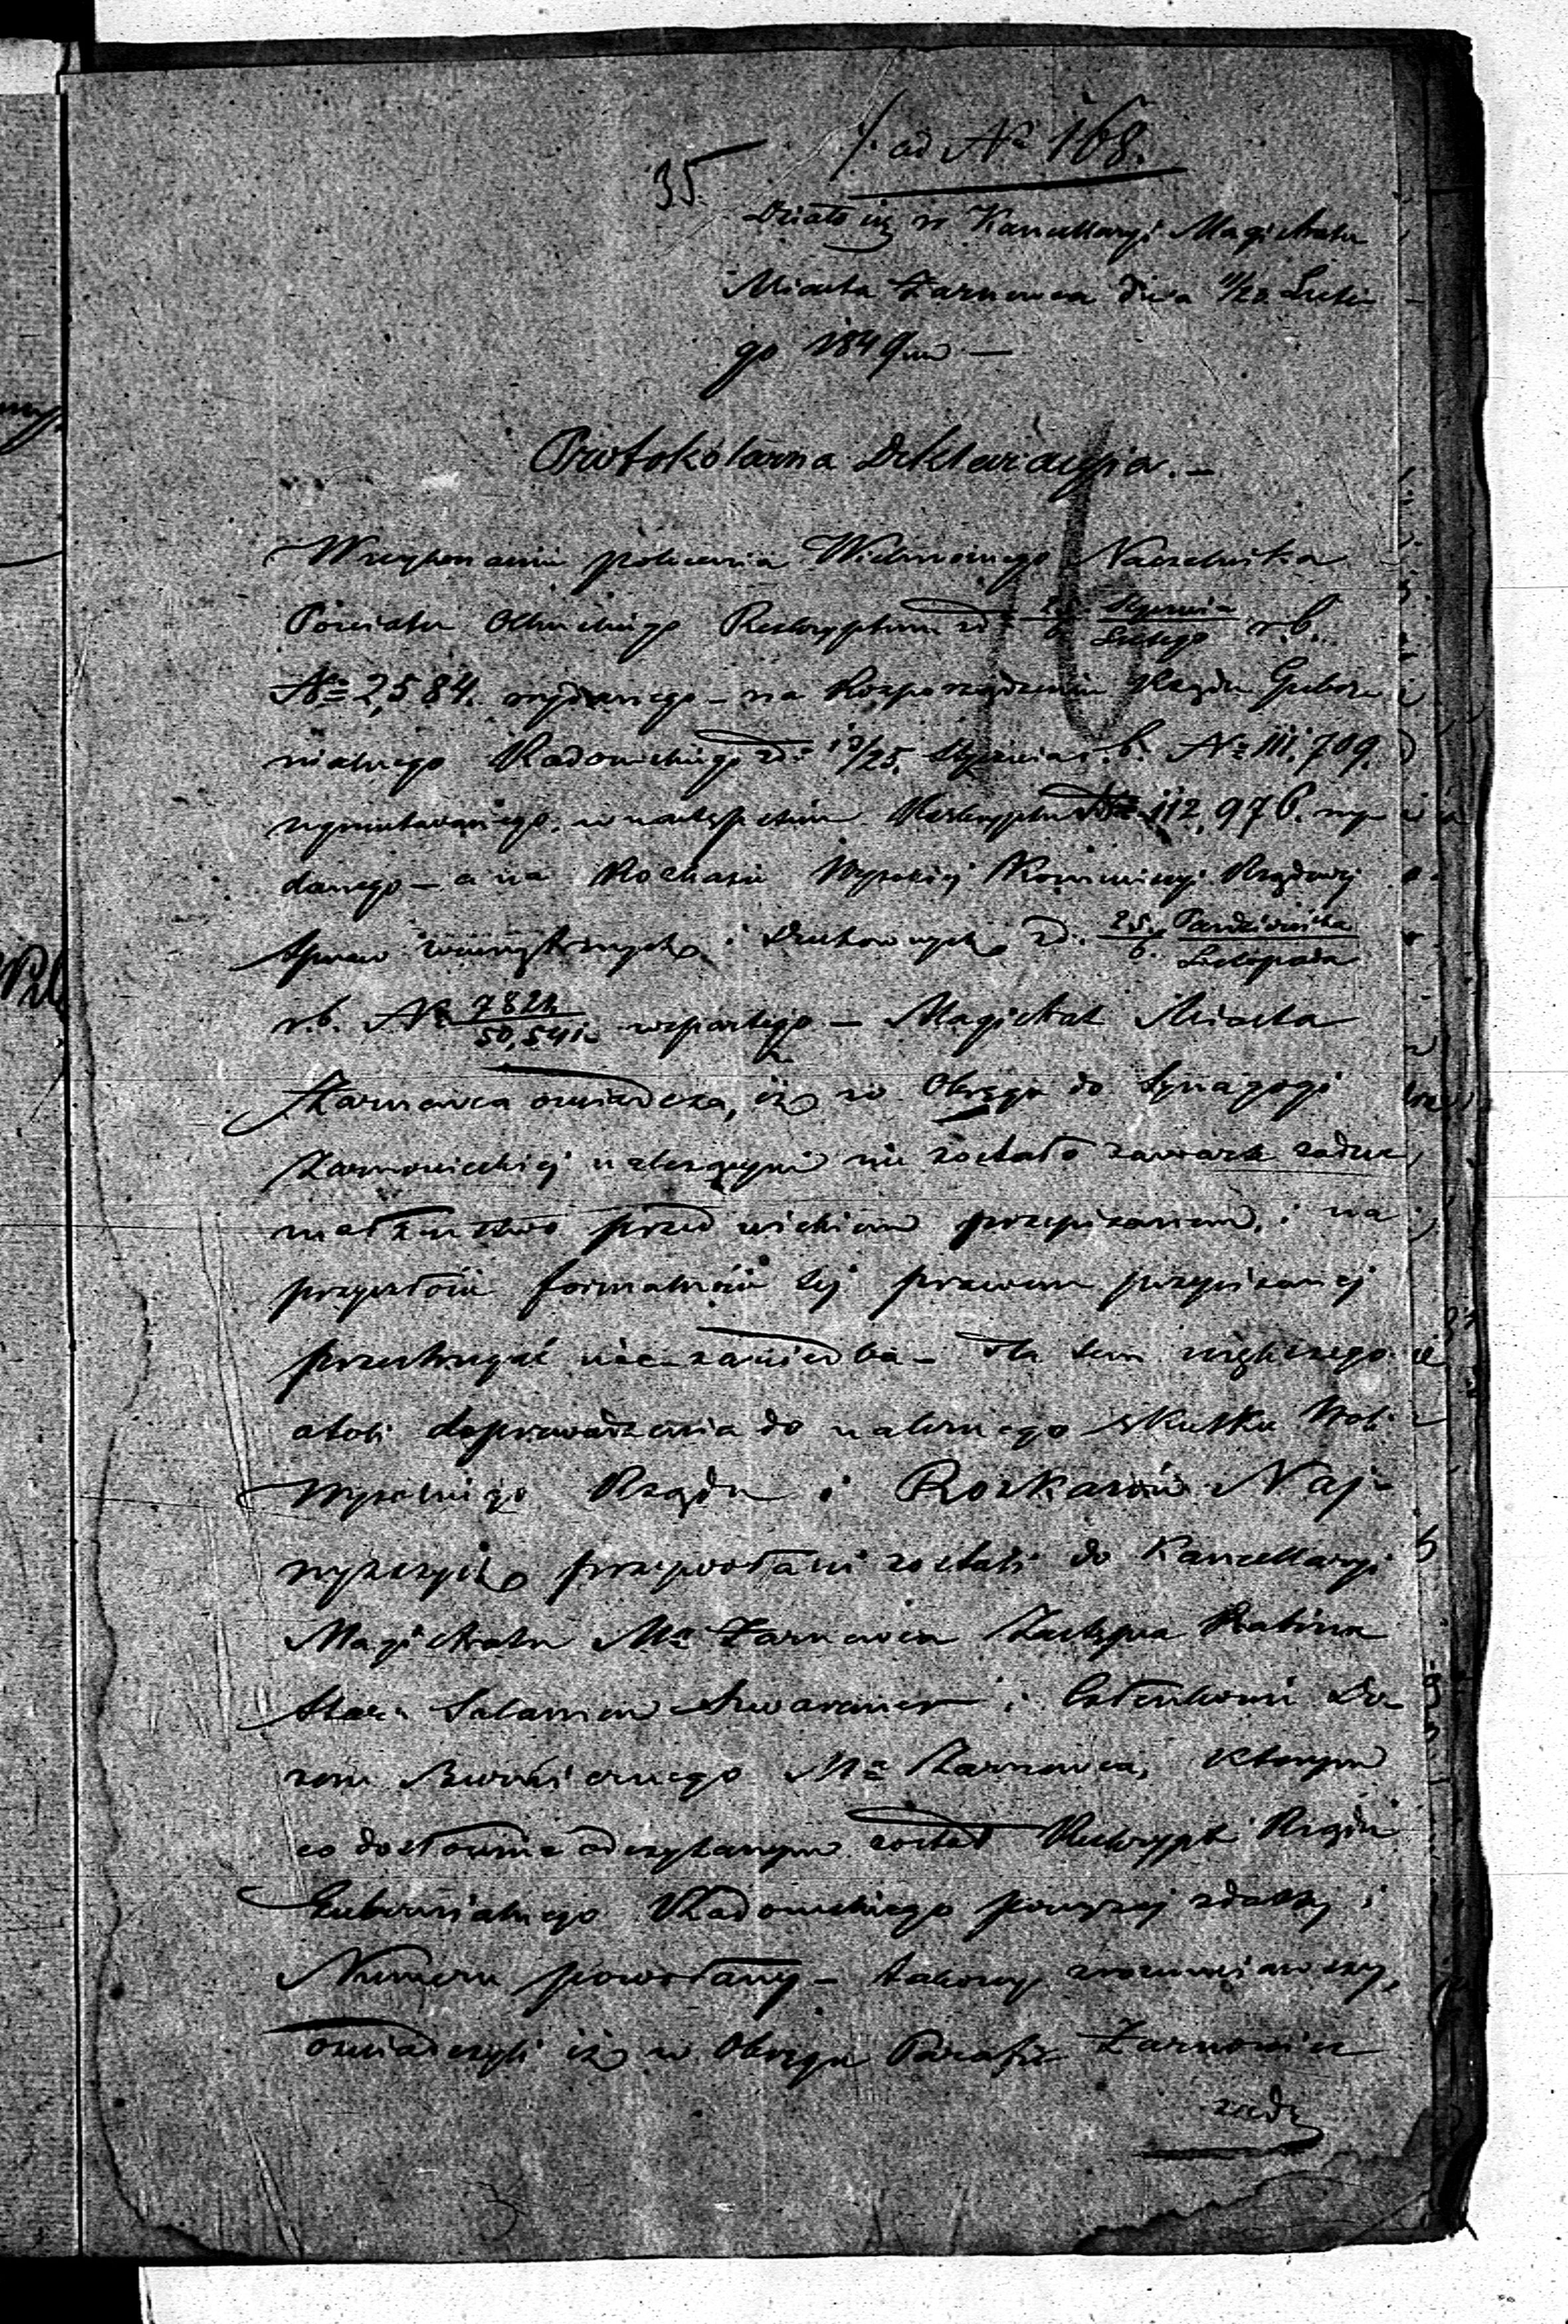 /. ad Nº 168.
35
Działo się w Kancellaryi Magistratu
Miasta Żarnowca dnia 11/23 Lute-
go 1849 r.
Protokólarna Deklaracyia. —
16
W wykonaniu polecenia Wielmożnego Naczelnika
Powiatu Olkuskiego Reskryptem z d. Stycznia/Lutego r.b.
Nº 2,584. wydanego — na Rozporządzenie Rządu Guber-
nialnego Radomskiego z d. 13/25. Stycznia r.b. Nº III. 709.
ugruntowanego, w następstwie Reskryptu Nº 112,976. wy-
danego — a na Rozkazie Wysokiej Kommissyi Rządowej
Spraw Wewnętrznych i Duchownych z d. 25. Października/6. Listopada
r.b. Nº 7824/50,541. wspartego — Magistrat Miasta
Żarnowca oświadcza, iż w Okręgu do Synagogi
Żarnowieckiej należącym nie zostało zawarte żadne
małżeństwo przed wiekiem przepisanem, i na
przyszłość formalności tej prawem przepisanej
przestrzegać nie zaniedba — dla tem większego
atoli doprowadzenia do należnego skutku Woli
Rządu i Rozkazów Naj-
wyższych przywołani zostali do Kancellaryi
Magistratu Mª Żarnowca Zastępca Rabina
Salamon i Członkowie Do-
zoru Bożniczego Mª Żarnowca, którym
co dosłownie odczytanym został Reskrypt Rządu
Gubernialnego Radomskiego powyżej z daty i
Numeru powołany — takowy zrozumiawszy,
oświadczyli iż w Okręgu Parafii Żarnowiec